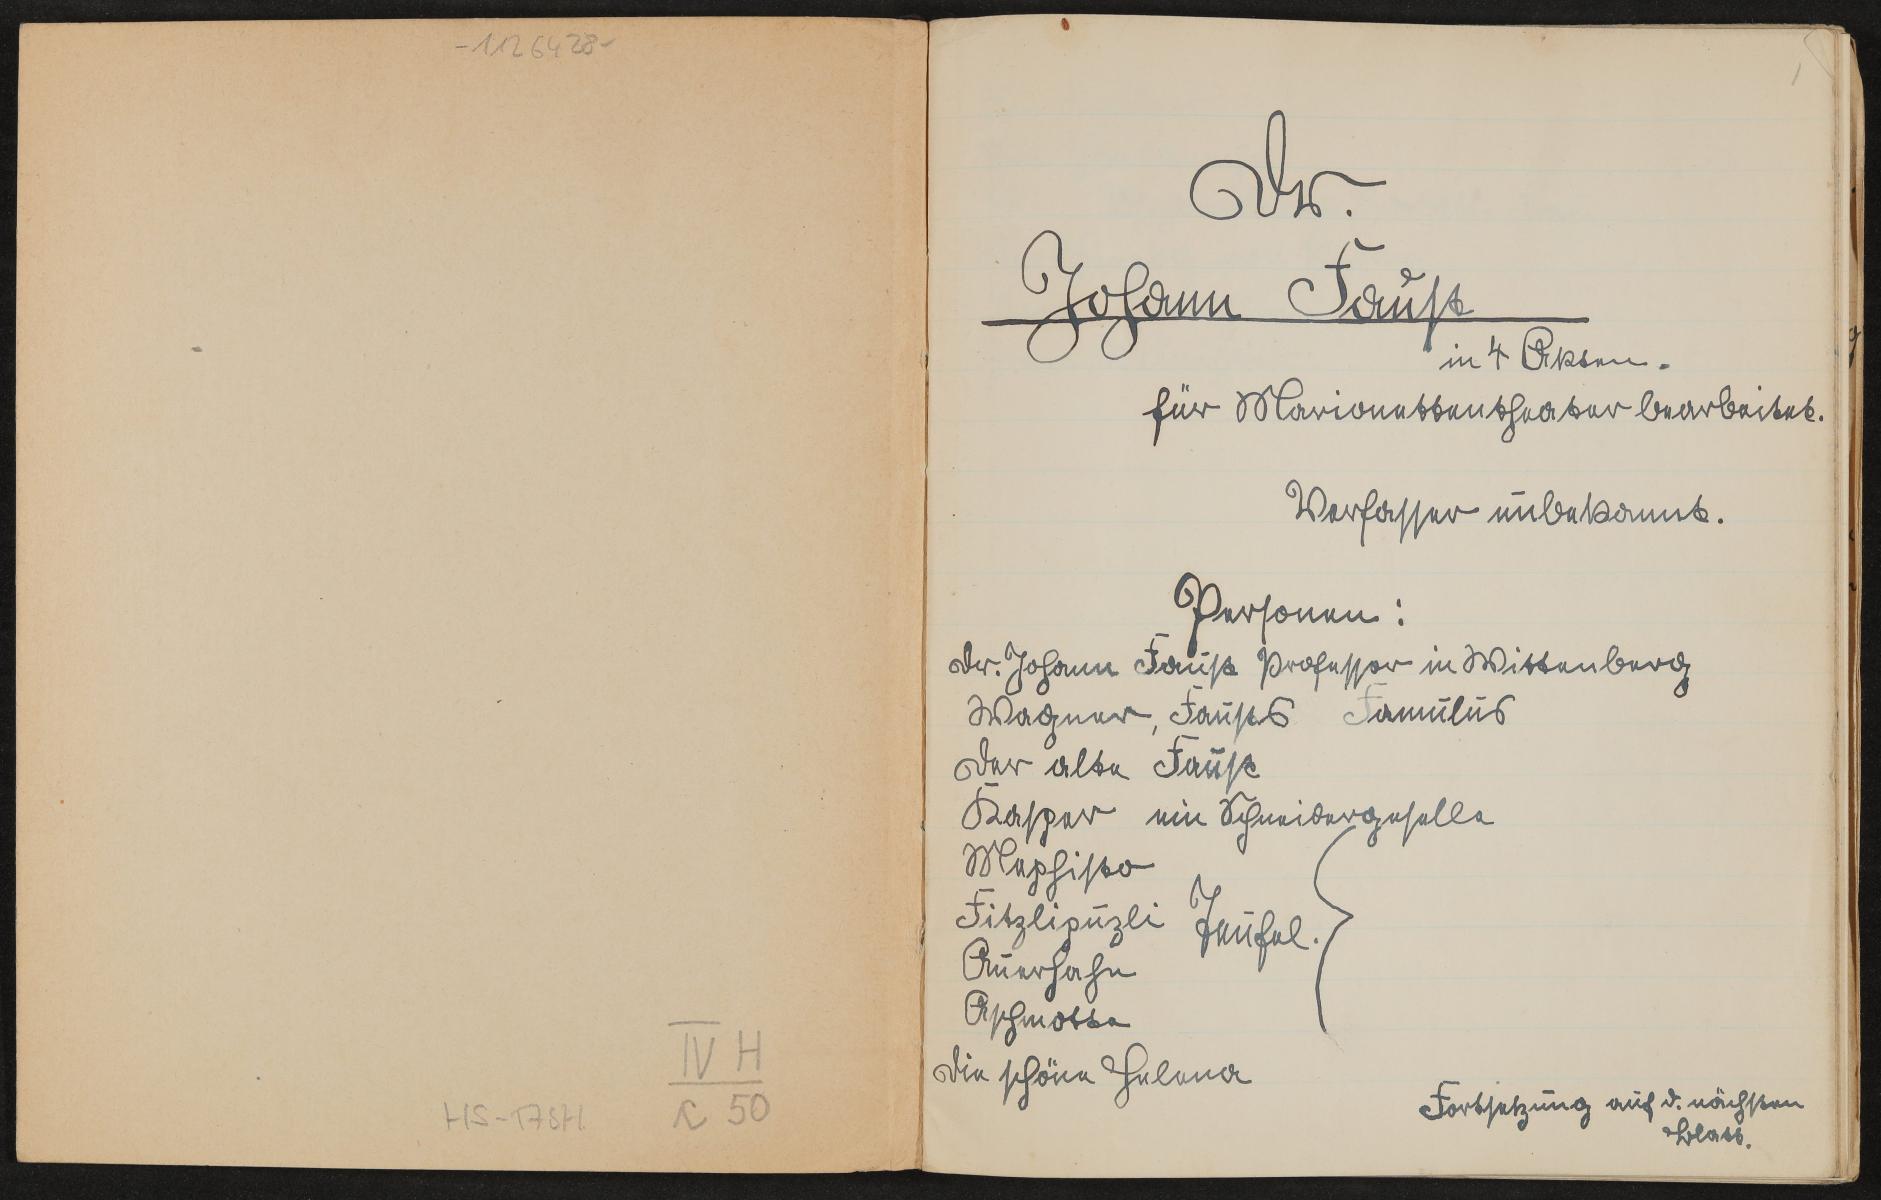 -1126428-
IV H
50
1
Dr.
Johann Faust
in 4 Akten.
für Marionettentheater bearbeitet.
Verfasser unbekannt.
Personen:
Dr. Johann Faust Professor in Wittenberg
Wagner, Fausts Famulus
Der alte Faust
Kasper ein Schneidergeselle
Mephisto
Fitzlipuzli Teufel.
Auerhahn
Aschmotte
Die schöne Helena
Fortsetzung auf d. nächsten
Blatt.